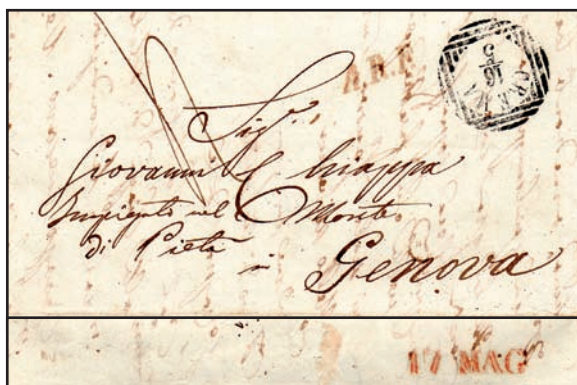 16
5
Sigr.
Giovanni Chiappa
Impiegato nel Monte
di Pietà
in Genova
17 MAG